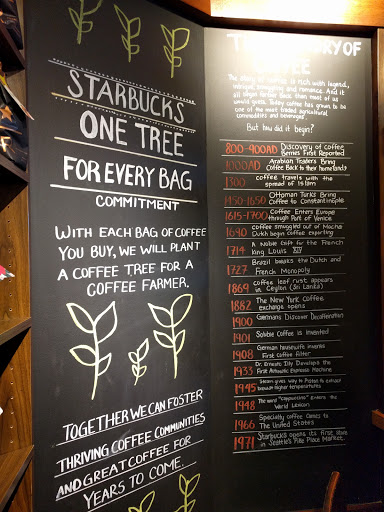 STARBUCKS
ONE TREE
FOR EVERY BAG
COMMITMENT
WITH EACH BAG OF COFFEE
YOU BUY, WE WILL PLANT
A COFFEE TREE FOR A
COFFEE FARMER.
TOGETHER WE CAN FOSTER
THRIVING COFFEE COMMUNITIES
AND GREAT COFFEE FOR
YEARS TO COME.
OF
The story of coffee is rich with legend,
intrigue, smuggling and romance. And it
all began farther back than most of us
would guess. Today coffee has grown to be
one of the most traded agricultural
commodities and beverages.
But how did it begin?
800-900AD Discovery of coffee
Berries First Reported
1000AD Arabian Traders Bring
Coffee Back to their homelands
1300 Coffee travels with the
spread of Islam
1450-1650 Ottoman Turks Bring
Coffee to Constantinople
1615-1700 Coffee Enters Europe
through Port of Venice
1690 Coffee smuggled out of Mocha
Dutch begin coffee Exporting
1714 A Noble Gift for the French
King Louis XIV
1727 Brazil breaks the Dutch and
French Monopoly
1869 Coffee leaf rust appears
in Ceylon (Sri Lanka)
1882 The New York Coffee
exchange opens
1900 Germans Discover Decaffeination
1901 Soluble Coffee is invented
1908 German housewife invents
First Coffee filter
1933 Dr. Ernesto Illy Develops the
First Automatic Espresso Machine
1945 Steam gives way to Piston to extract
through higher temperatures
1948 The word "cappuccino" Enters the
World Lexicon
1966 Specialty coffee Comes to
The United States
1971 Starbucks opens its first store
in Seattle's Pike Place Market.